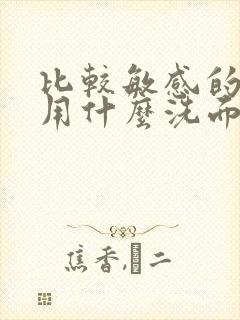 比較敏感的
用什麼洗面
焦香,二